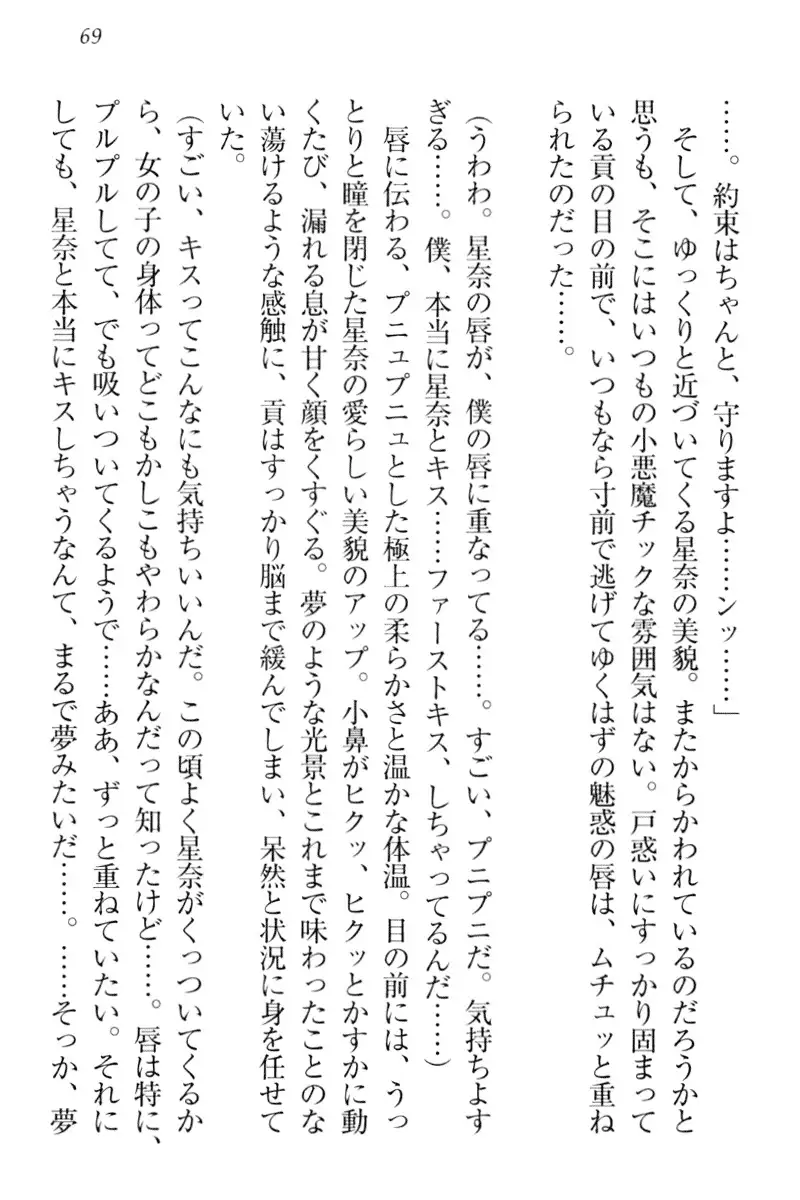 69
……。約束はちゃんと、守りますよ……ンッ……」
そして、ゆっくりと近づいてくる星奈の美貌。またからかわれているのだろうかと
思うも、そこにはいつもの小悪魔チックな雰囲気はない。戸惑いにすっかり固まって
いる貢の目の前で、いつもなら寸前で逃げてゆくはずの魅惑の唇は、ムチュッと重ね
られたのだった……。
（うわわ。星奈の唇が、僕の唇に重なってる……。すごい、プニプニだ。気持ちよす
ぎる……。僕、本当に星奈とキス……ファーストキス、しちゃってるんだ……）
唇に伝わる、プニュプニュとした極上の柔らかさと温かな体温。目の前には、うっ
とりと瞳を閉じた星奈の愛らしい美貌のアップ。小鼻がヒクッ、ヒクッとかすかに動
くたび、漏れる息が甘く顔をくすぐる。夢のような光景とこれまで味わったことのな
い蕩けるような感触に、貢はすっかり脳まで緩んでしまい、呆然と状況に身を任せて
いた。
（すごい、キスってこんなにも気持ちいいんだ。この頃よく星奈がくっついてくるか
ら、女の子の身体ってどこもかしこもやわらかなんだって知ったけど……。唇は特に、
プルプルしてて、でも吸いついてくるようで……ああ、ずっと重ねていたい。それに
しても、星奈と本当にキスしちゃうなんて、まるで夢みたいだ……。……そっか、夢